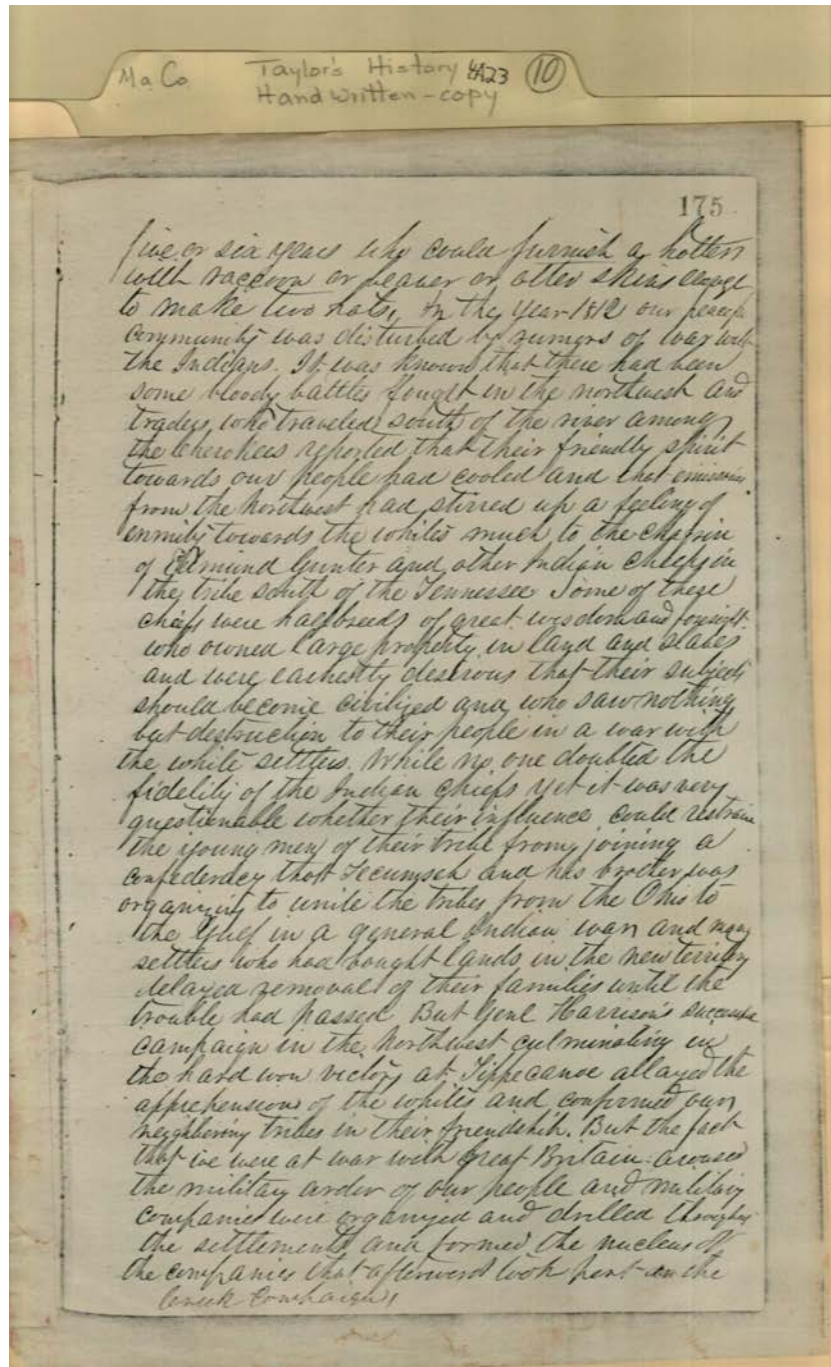 Ma Co Taylor's History 4A23 10
Handwritten-copy
175
five or six years who could furnish a hatter
with raccoon or beaver or otter skins enough
to make two hats, In the year 1812 our peaceful
community was disturbed by rumors of war with
the Indians. It was known that there had been
some bloody battles fought in the northwest and
traders who traveled south of the river among
the Cherokees reported that their friendly spirit
towards our people had cooled and that emissaries
from the Northwest had stirred up a feeling of
enmity towards the whites much to the chagrin
of Edmund Gunter and other Indian chiefs in
the tribe south of the Tennessee Some of these
chiefs were halfbreeds of great wisdom and foresight
who owned large property in land and slaves
and were earnestly desirous that their subjects
should become civilized and who saw nothing
but destruction to their people in a war with
the white settlers. While no one doubted the
fidelity of the Indian chiefs yet it was very
questionable whether their influence could restrain
the young men of their tribe from joining a
confederacy that Tecumseh and his brother was
organizing to unite the tribes from the Ohio to
the Gulf in a general Indian war and many
settlers who had bought lands in the new territory
delayed removal of their families until the
trouble had passed But Genl Harrison's successful
campaign in the Northwest culminating in
the hard won victory at Tippecanoe allayed the
apprehensions of the whites and confirmed our
neighboring tribes in their friendship. But the fact
that we were at war with Great Britain aroused
the military ardor of our people and military
companies were organized and drilled throughout
the settlements and formed the nucleus of
the companies that afterwards took part in the
Creek Campaigns